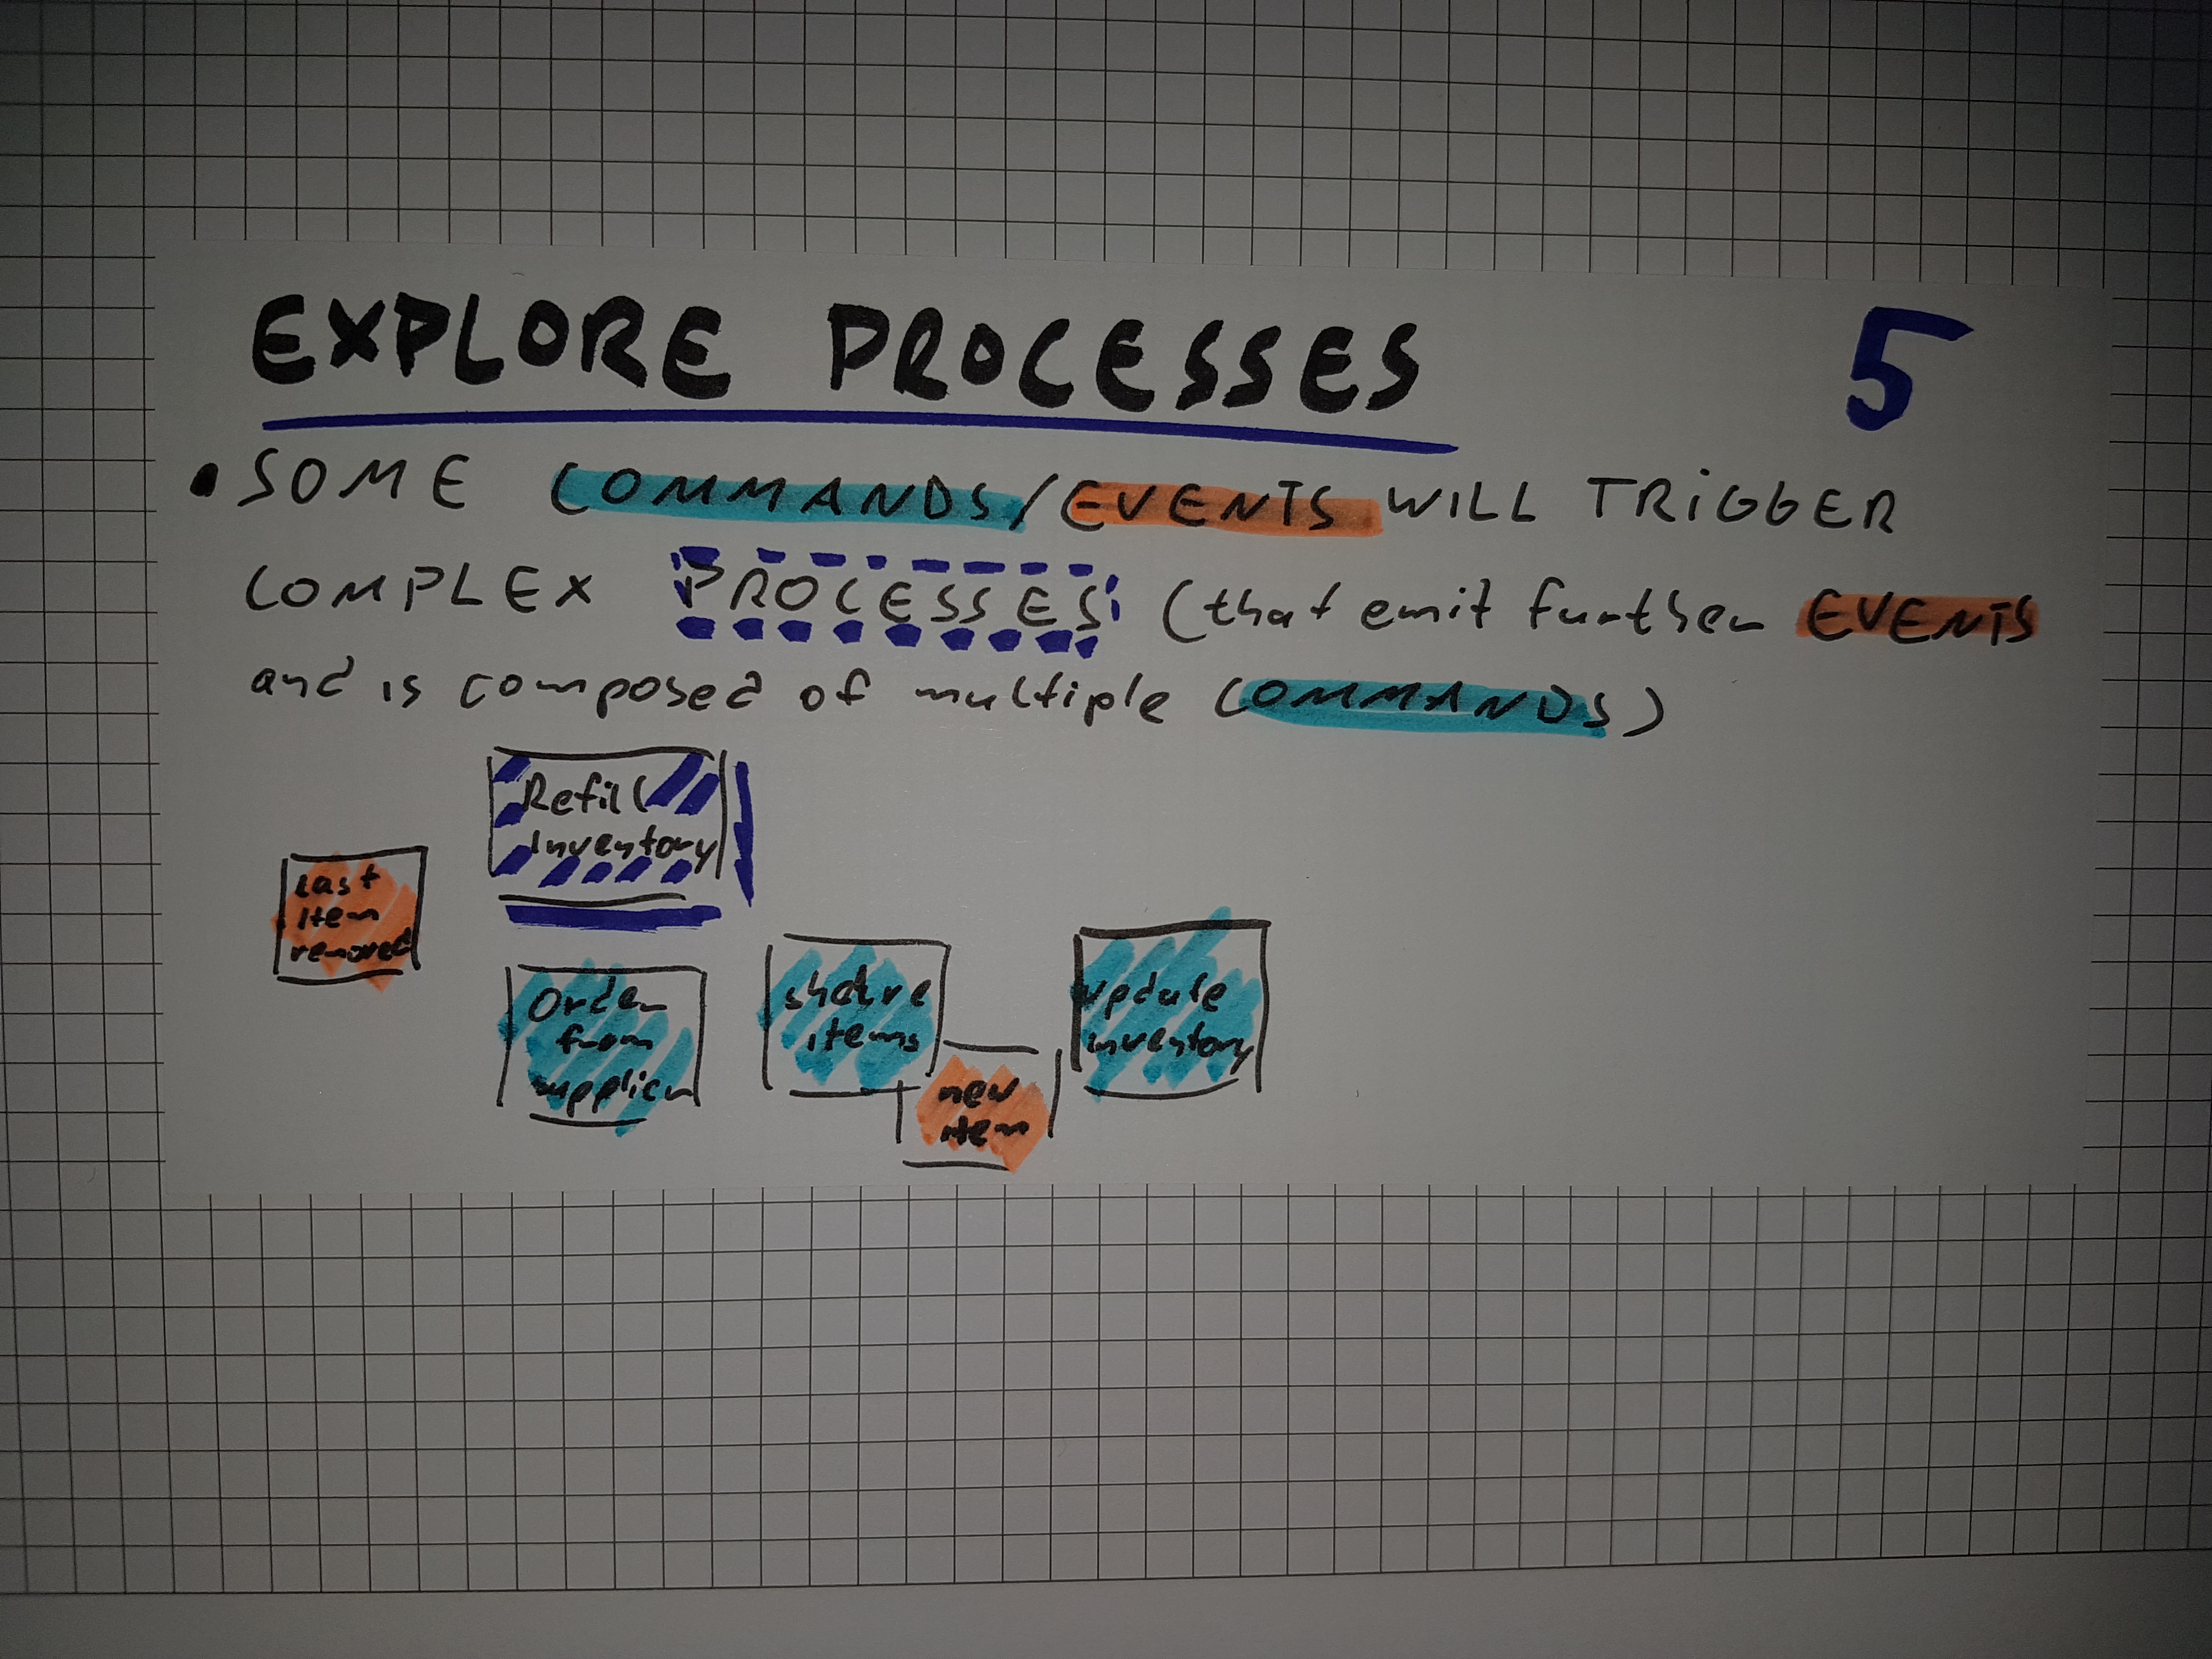 EXPLORE PROCESSES
5
• SOME COMMANDS/EVENTS WILL TRIGGER
COMPLEX PROCESSES (that emit further EVENTS
and is composed of multiple COMMANDS)
Last
item
removed
Refill
inventory
Order
from
supplier
shelve
items
new
item
update
inventory